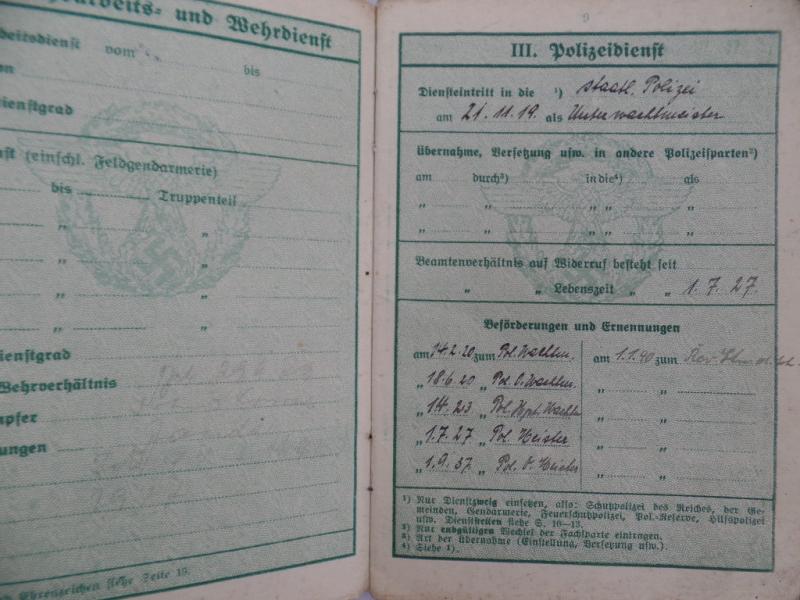 arbeits- und Wehrdienst
arbeitsdienst vom
bis
Dienstgrad
(einschl. Feldgendarmerie)
bis Truppenteil
„ „
„ „
„ „
„ „
Dienstgrad
Wehrverhältnis
9
III. Polizeidienst
Diensteintritt in die ¹) staatl. Polizei
am 21.11.19. als Unterwachtmeister
Übernahme, Versetzung usw. in andere Polizeisparten²)
am durch³) in die⁴) als
„ „ „ „ „
„ „ „ „ „
Beamtenverhältnis auf Widerruf besteht seit
„ „ Lebenszeit „ „ 1.7.27.
Beförderungen und Ernennungen
am 14.2.20 zum Pol. Wachtm.
„ 18.6.20 „ Pol. O. Wachtm.
„ 1.4.23 „ Pol. Hpt. Wachtm
„ 1.7.27 „ Pol. Meister
„ 1.9.37 „ Pol. O. Meister
am 1.1.40 zum Rev.
„ „
„ „
„ „
„ „
¹) Nur Dienstzweig einsetzen, also: Schutzpolizei des Reiches, der Ge-
meinden, Gendarmerie, Feuerschutzpolizei, Pol.-Reserve, Hilfspolizei
usw. Dienststellen siehe S. 10—13.
²) Nur endgültigen Wechsel der Fachsparte eintragen.
³) Art der Übernahme (Einstellung, Versetzung usw.).
⁴) Siehe ¹).
Ehrenzeichen siehe Seite 19.